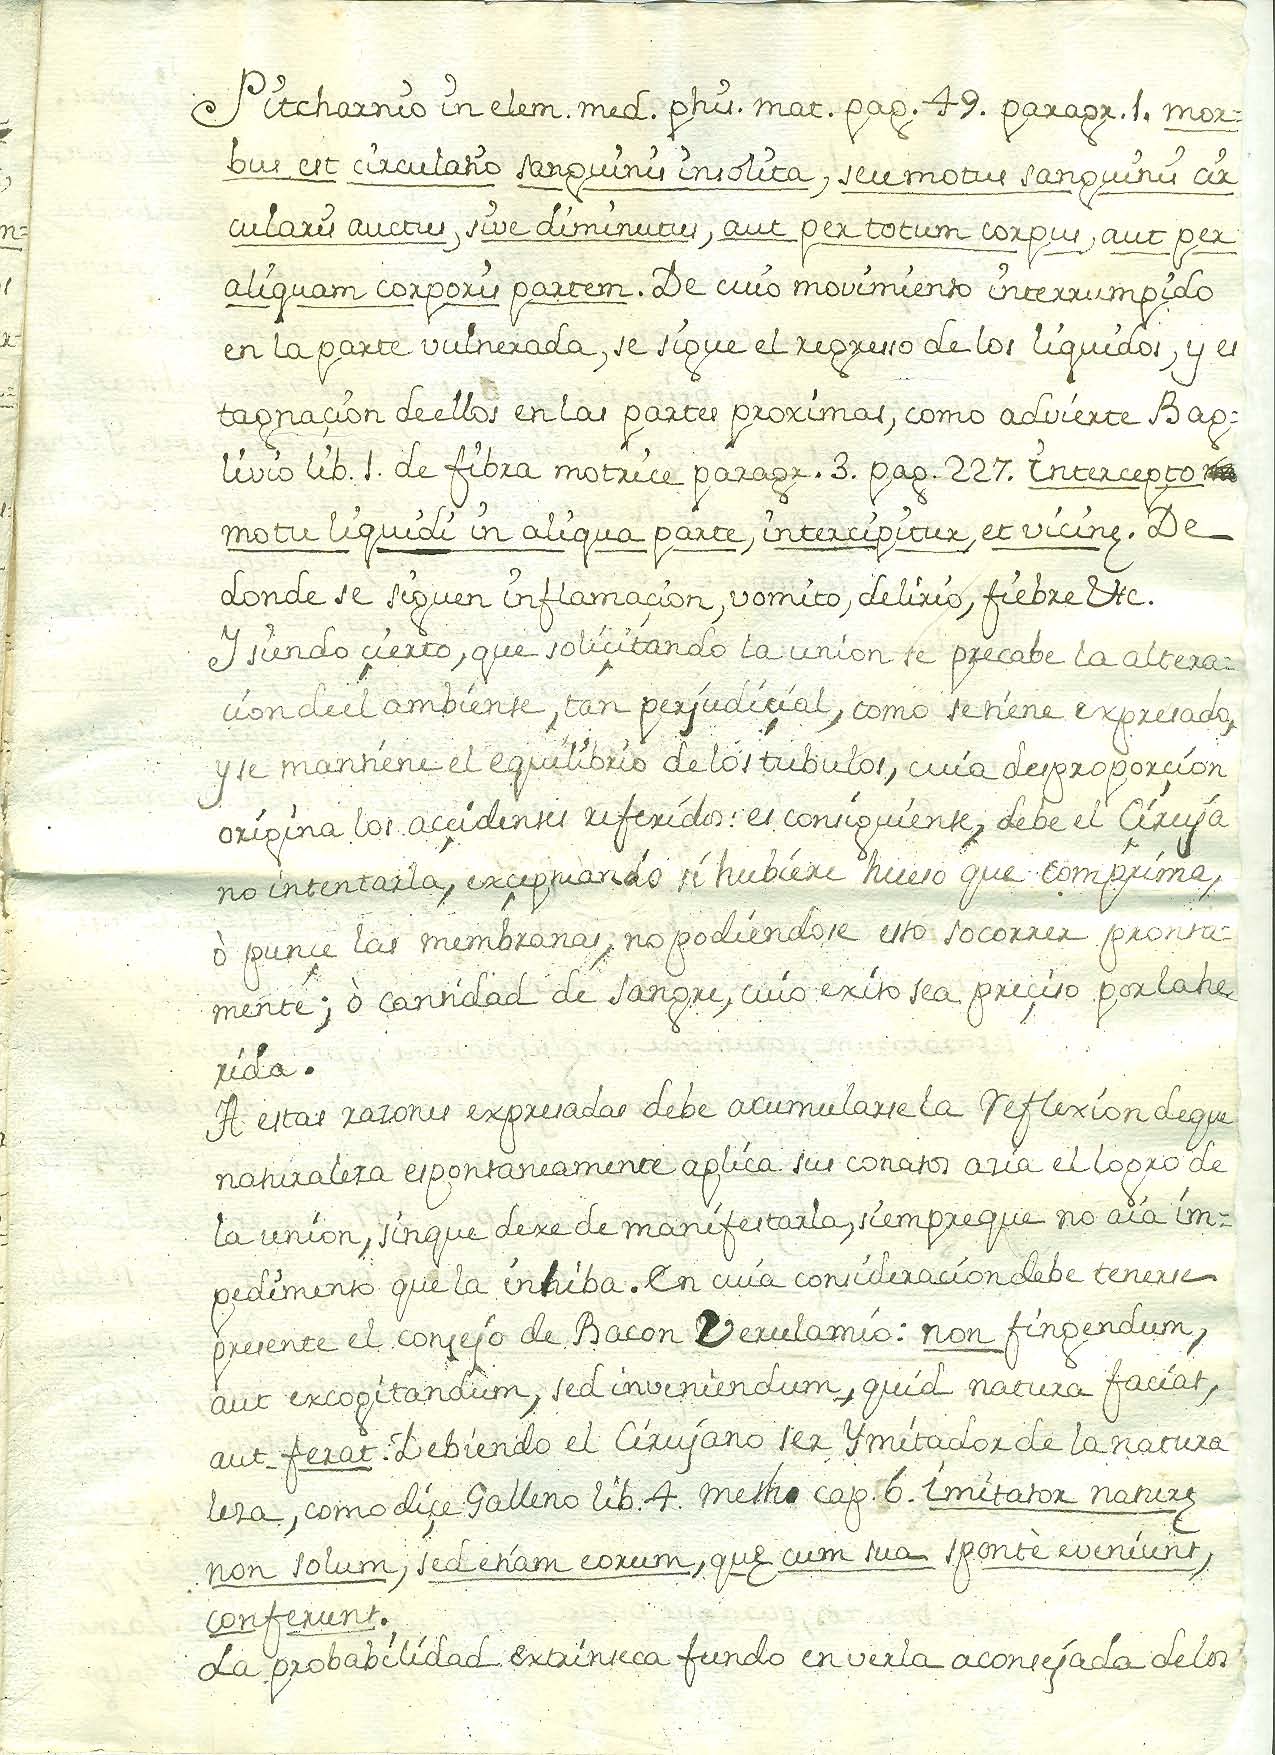 Pitcharnio in elem. med. phis. mat. pag. 49. paragr. 1. mor=
bus est circulatio sanguinis insolita, seu motus sanguinis cir
cularis auctus, sive diminutus, aut per totum corpus, aut per
aliquam corporis partem. De cuio movimiento interrumpido
en la parte vulnerada, se sigue el regreso de los liquidos, y es
tagnaçion de ellos en las partes proximas, como advierte Bag=
livio lib. 1. de fibra motrice paragr. 3. pag. 227. Intercepto
motu liquidi in aliqua parte, intercipitur, et viçinę. De
donde se siguen inflamaçion, vomito, delirio, fiebre &c.
Y siendo çierto, que soliçitando la union se precabe la altera=
cion de el ambiente, tan perjudiçial, como se tiene expresado,
y se mantiene el equilibrio de los tubulos, cuia desproporçion
origina los acçidentes referidos: es consiguiente, debe el Çiruja
no intentarla, exçeptuando si hubiere hueso que comprima,
ò punçe las membranas, no podiendose esto socorrer pronta=
mente; ò cantidad de sangre, cuio exito sea preçiso por la he
rida.
A estas razones expresadas debe acumularse la reflexion de que
naturaleza espontaneamente aplica sus conatos azia el logro de
la union, sin que dexe de manifestarla, siempre que no aia im=
pedimento que la inhiba. En cuia consideracion debe tenerse
presente el consejo de Bacon Verulamio: non fingendum,
aut excogitandum, sed inveniendum, quid natura faciat,
aut ferat. Debiendo el Cirujano ser Ymitador de la natura
leza, como diçe Galleno lib. 4. metho cap. 6. Imitator naturę
non solum, sed etiam eorum, quę cum sua spontè eveniunt,
conferunt.
La probabilidad extrinseca fundo en verla aconsejada de los